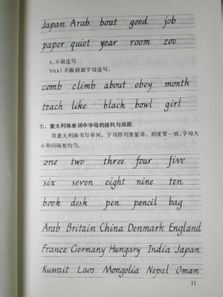 Japan Arab boat good job
paper quiet year room zoo
5.不前连写
b h k l 不跟前面字母连写。
comb climb about obey month
teach like black bowl girl
七、意大利体单词中字母的排列与间距
用意大利体书写单词,字母排列要紧凑,斜度要一致,字母大
小和间隔要均匀。
one two three four five
six seven eight nine ten
book desk pen pencil bag
Arab Britain China Denmark England
France Germany Hungary India Japan
Kuwait Laos Mongolia Nepal Oman
11